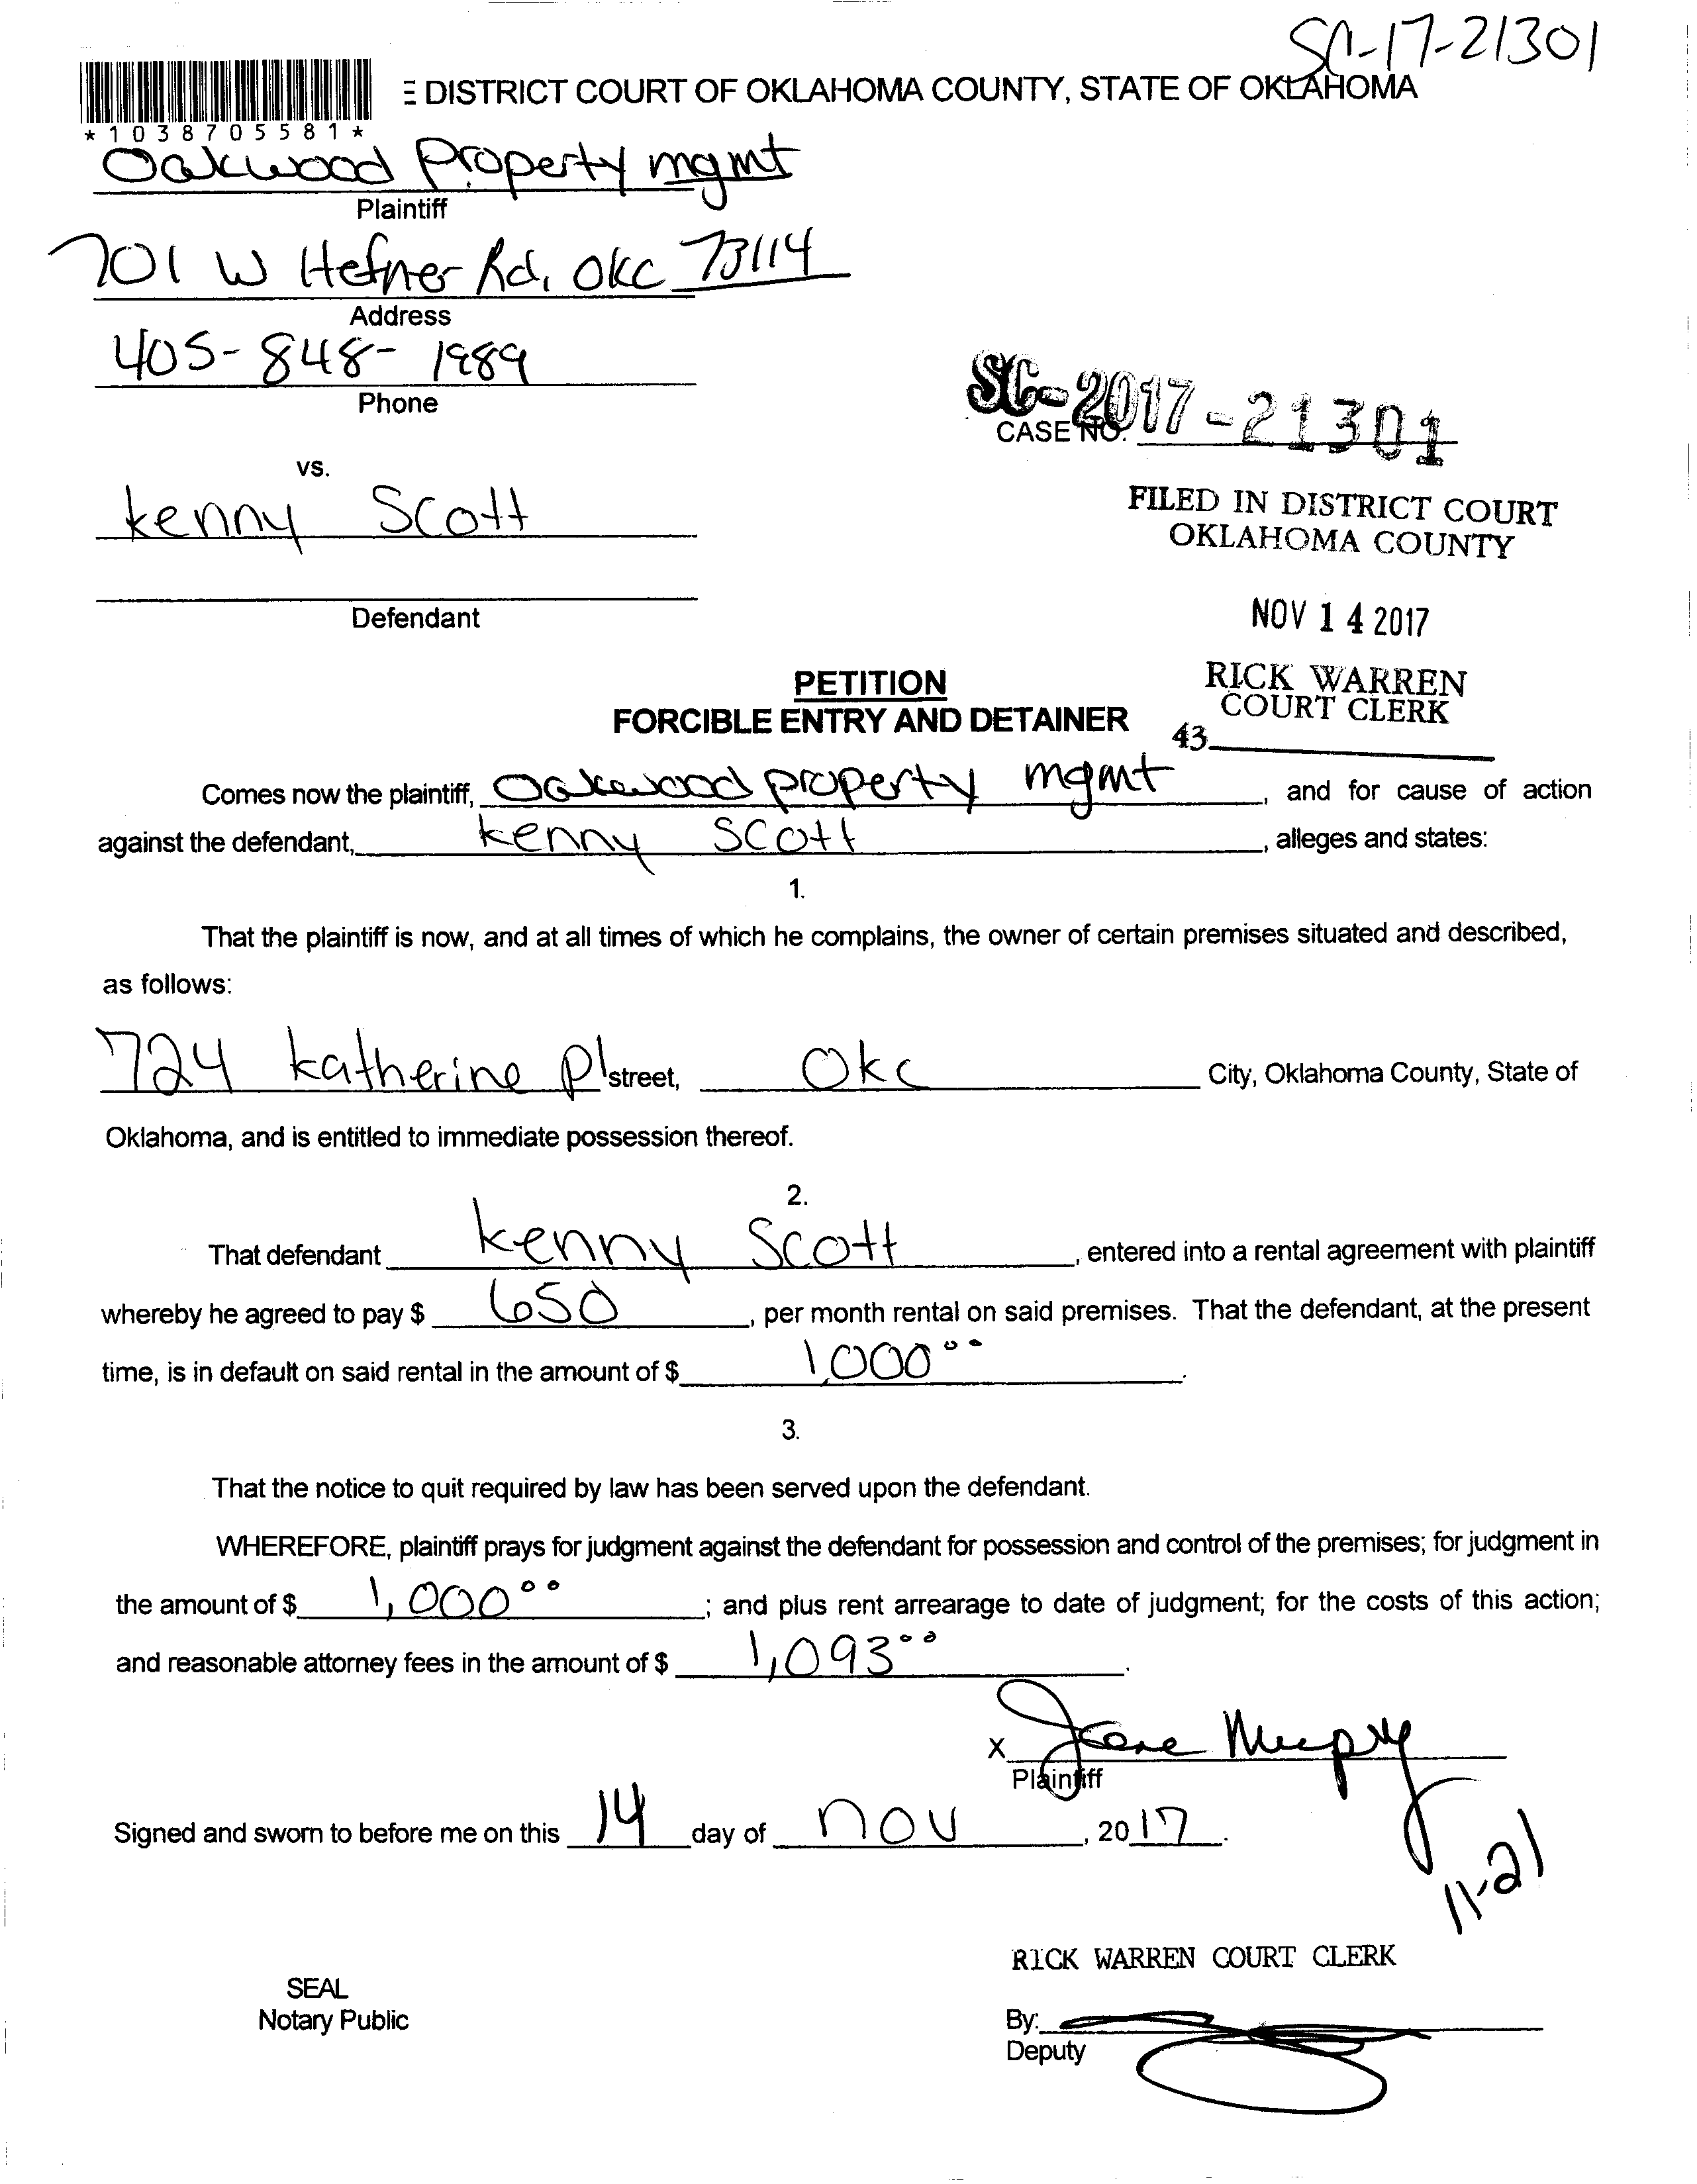 SC-17-21301
E DISTRICT COURT OF OKLAHOMA COUNTY, STATE OF OKLAHOMA
*1038705581*
Oakwood Property mgmt
Plaintiff
701 W Hefner Rd, OKC 73114
Address
405-848-1989
Phone
SC-2017-21301
CASE NO.
vs.
kenny Scott
FILED IN DISTRICT COURT
OKLAHOMA COUNTY
Defendant
NOV 14 2017
PETITION
FORCIBLE ENTRY AND DETAINER
RICK WARREN
COURT CLERK
43
Comes now the plaintiff, Oakwood property mgmt, and for cause of action
against the defendant, kenny Scott, alleges and states:
1.
That the plaintiff is now, and at all times of which he complains, the owner of certain premises situated and described,
as follows:
724 katherine pl street, Okc City, Oklahoma County, State of
Oklahoma, and is entitled to immediate possession thereof.
2.
That defendant kenny Scott, entered into a rental agreement with plaintiff
whereby he agreed to pay $ 650, per month rental on said premises. That the defendant, at the present
time, is in default on said rental in the amount of $ 1,000⁰⁰.
3.
That the notice to quit required by law has been served upon the defendant.
WHEREFORE, plaintiff prays for judgment against the defendant for possession and control of the premises; for judgment in
the amount of $ 1,000⁰⁰; and plus rent arrearage to date of judgment; for the costs of this action;
and reasonable attorney fees in the amount of $ 1,093⁰⁰.
X
Plaintiff
Signed and sworn to before me on this 14 day of nov, 2017.
11-21
RICK WARREN COURT CLERK
SEAL
Notary Public
By:
Deputy